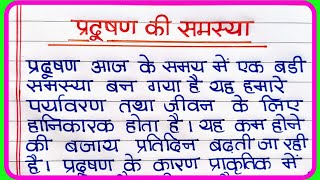 प्रदूषण की समस्या
प्रदूषण आज के समय में एक बडी
समस्या बन गया है यह हमारे
पर्यावरण तथा जीवन के लिए
हानिकारक होता है। यह कम होने
की बजाय प्रतिदिन बढती जा रही
है। प्रदूषण के कारण प्राकृतिक में